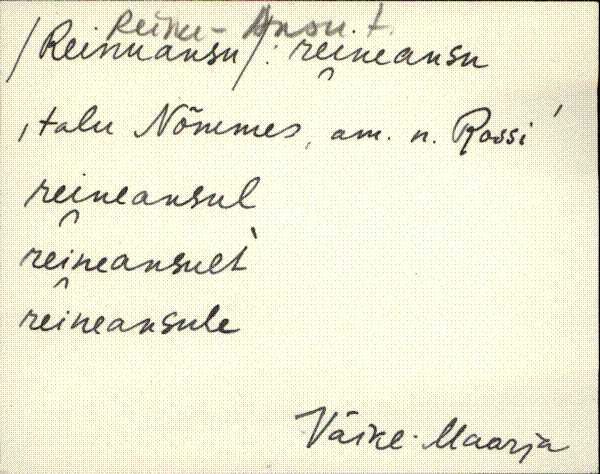 Reinu-Ansu t.
/Reinuansu/: rei̯neansu
, talu Nõmmes, am. n. Rossi ʹ
rei̯neansul
rei̯neansult̀
rei̯neansule
Väike-Maarja